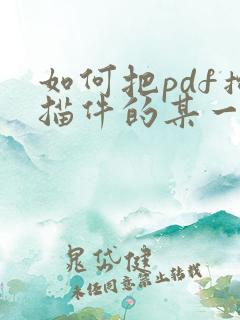 如何把pdf扫
描件的某一
晁岱健
未经同意禁止转载